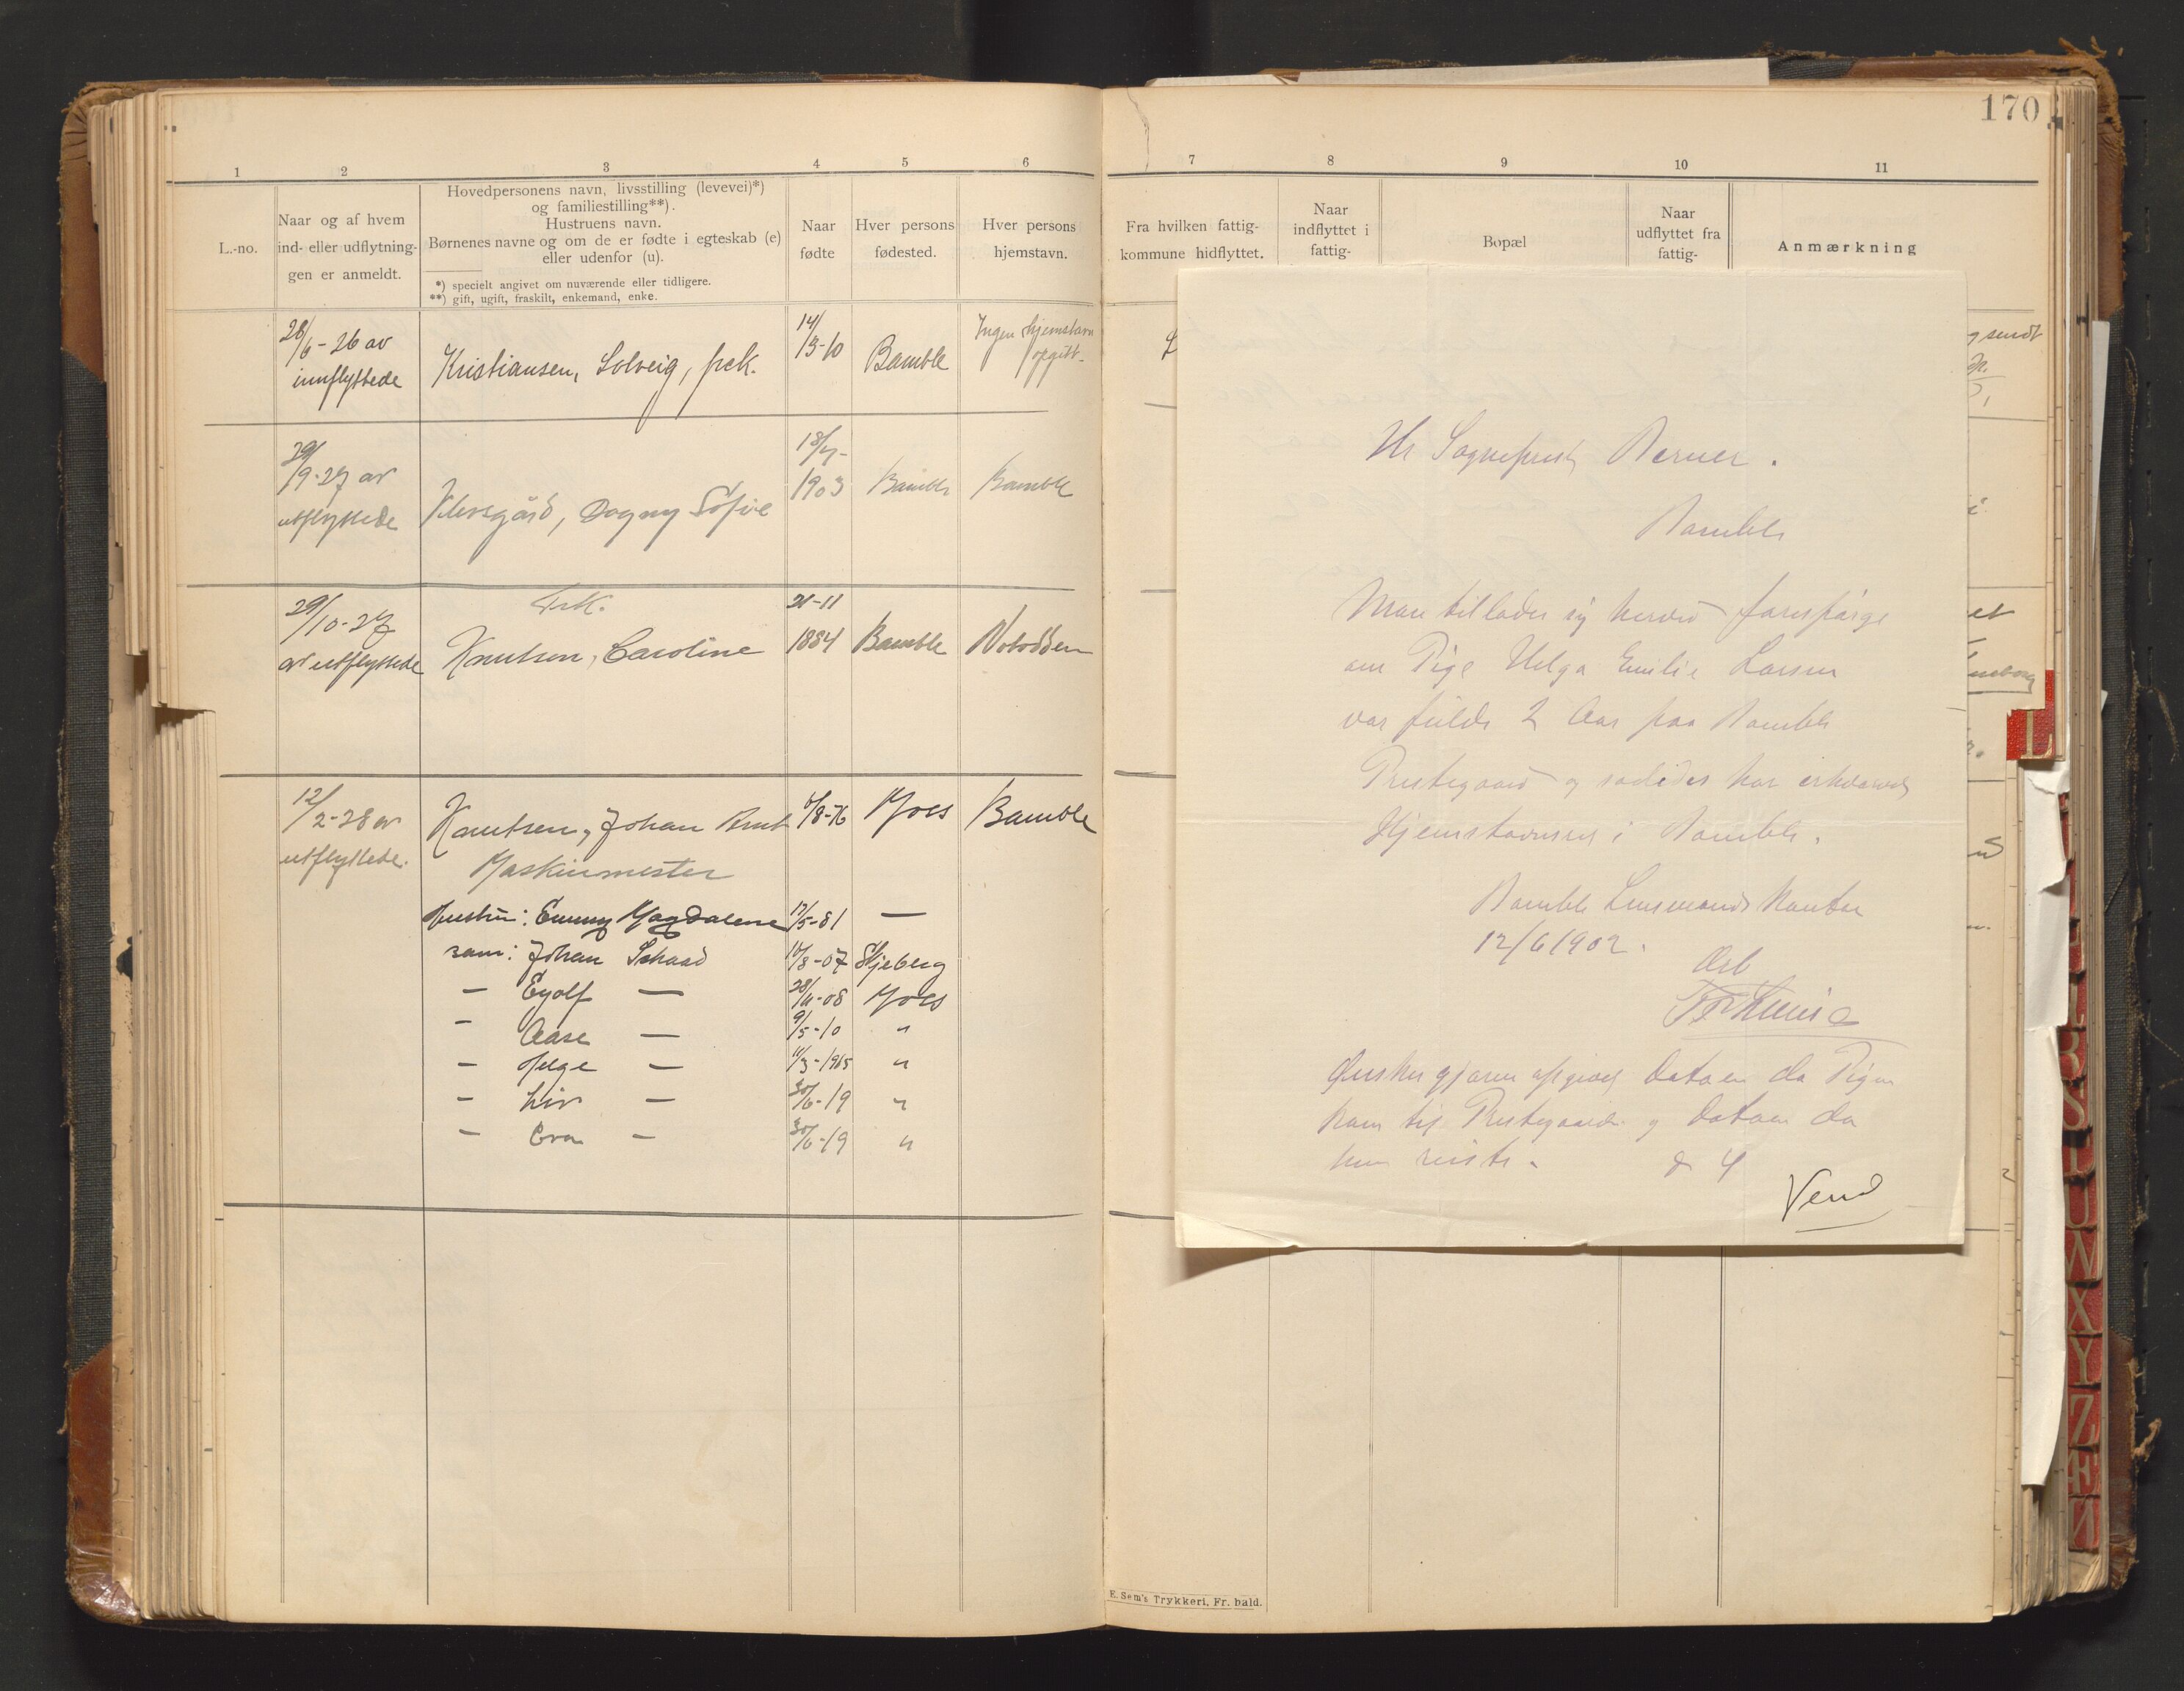 170
1 2 3 4 5 6 7 8 9 10 11
L.-no.
Naar og af hvem
ind- eller udflytnin-
gen er anmeldt.
Hovedpersonens navn, livsstilling (levevei)*)
og familiestilling**).
Hustruens navn.
Børnenes navne og om de er fødte i egteskab (e)
eller udenfor (u).
*) specielt angivet om nuværende eller tidligere.
**) gift, ugift, fraskilt, enkemand, enke.
Naar
fødte
Hver persons
fødested.
Hver persons
hjemstavn.
Fra hvilken fattig-
kommune hidflyttet.
Naar
indflyttet i
fattig-
Bopæl
Naar
udflyttet fra
fattig-
Anmærkning
28/6-26 av
innflyttede
Kristiansen, Solveig, frk.
14/3-10
Bamble
Ingen hjemstavn
opgitt
29/9-27 av
utflyttede
Dagny Sofie
18/7-
1903
Bamble
Bamble
29/10-27
av utflyttede
Frk.
Knutsen, Caroline
21-11
1884
Bamble
Notodden
12/2-28 av
utflyttede.
Knutsen, Johan
Maskinmester
/8-76
Moss
Bamble
Hustru: Emmy Magdalene 17/5-81 —
barn: Johan Schaad /8-07 Skjeberg
— Eyolf — 28/11-08 Moss
— Aase — 9/5-10 "
— Helge — 11/3-1915 "
— Liv — 30/6-19 "
— Eva — 30/6-19 "
Hr Sogneprest Berner.
Bamble
Man tillader sig herved forespørge
om Pige Helga Emilie Larsen
var fulde 2 Aar paa Bamble
Prestegaard og saaledes har erhvervet
Hjemstavnsret i Bamble.
Bamble Lensmands Kontor
12/6 1902.
Ærb
Ønsker gjerne opgivet Datoen da Pigen
kom til Prestegaarden og Datoen da
hun reiste.
Vend
E. Sem's Trykkeri, Fr. hald.
L
S
T
U
W
X
Y
Z
Æ